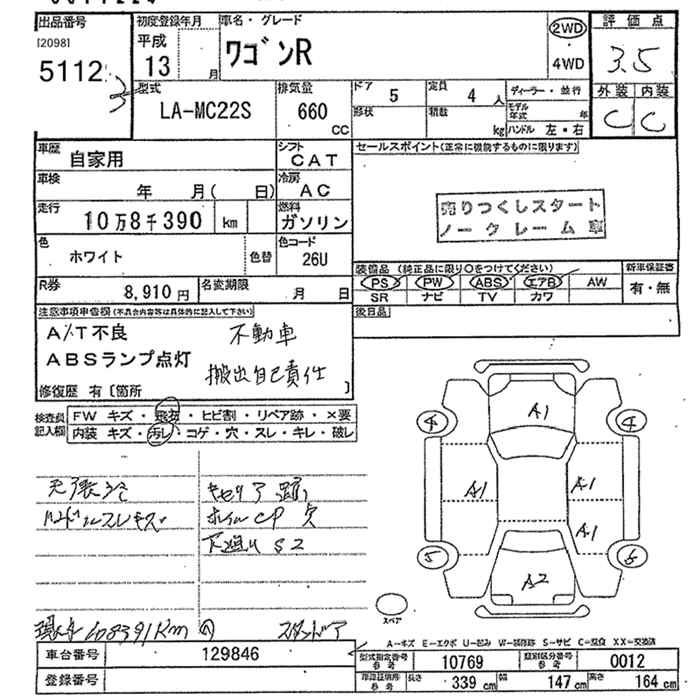 出品番号 初度登録年月 車名・グレード 2WD 評価点
[2098] 平成 ワゴンR 3.5
5112 13 月 4WD 外装 内装
型式 排気量 ドア 5 定員 4 人 ディーラー・並行 C C
LA-MC22S 660 CC 形状 積載 kg モデル年式 年
ハンドル 左・右
車歴 自家用 シフト CAT セールスポイント(正常に機能するものに限ります)
車検 年 月( 日) 冷房 AC
走行 10万8千390 km 燃料 ガソリン 売りつくしスタート
ノークレーム車
色 ホワイト 色替 色コード 26U
装備品 (純正品に限り○をつけてください) 新車保証書
R券 8,910円 名変期限 月 日 PS PW ABS エアB AW 有・無
SR ナビ TV カワ
注意事項申告欄(不具合内容等は具体的に記入して下さい) 後日品
A/T不良 不動車
ABSランプ点灯
搬出自己責任
修復歴 有〔箇所 〕
検査員記入欄 FW キズ・飛石・ヒビ割・リペア跡・×要
内装 キズ・汚レ・コゲ・穴・スレ・キレ・破レ
A1
4 4
A1 A1
A1
天張汚 キャリア跡
ハンドルスレキズ ホイルCP欠
下廻りS2
5 6
A2
スペア
108391Km
A=キズ E=エクボ U=凹み W=補修跡 S=サビ C=腐食 XX=交換済
車台番号 129846 型式指定番号 参考 10769 類別区分番号 参考 0012
登録番号 車両証明用 参考 長さ 339 cm 幅 147 cm 高さ 164 cm